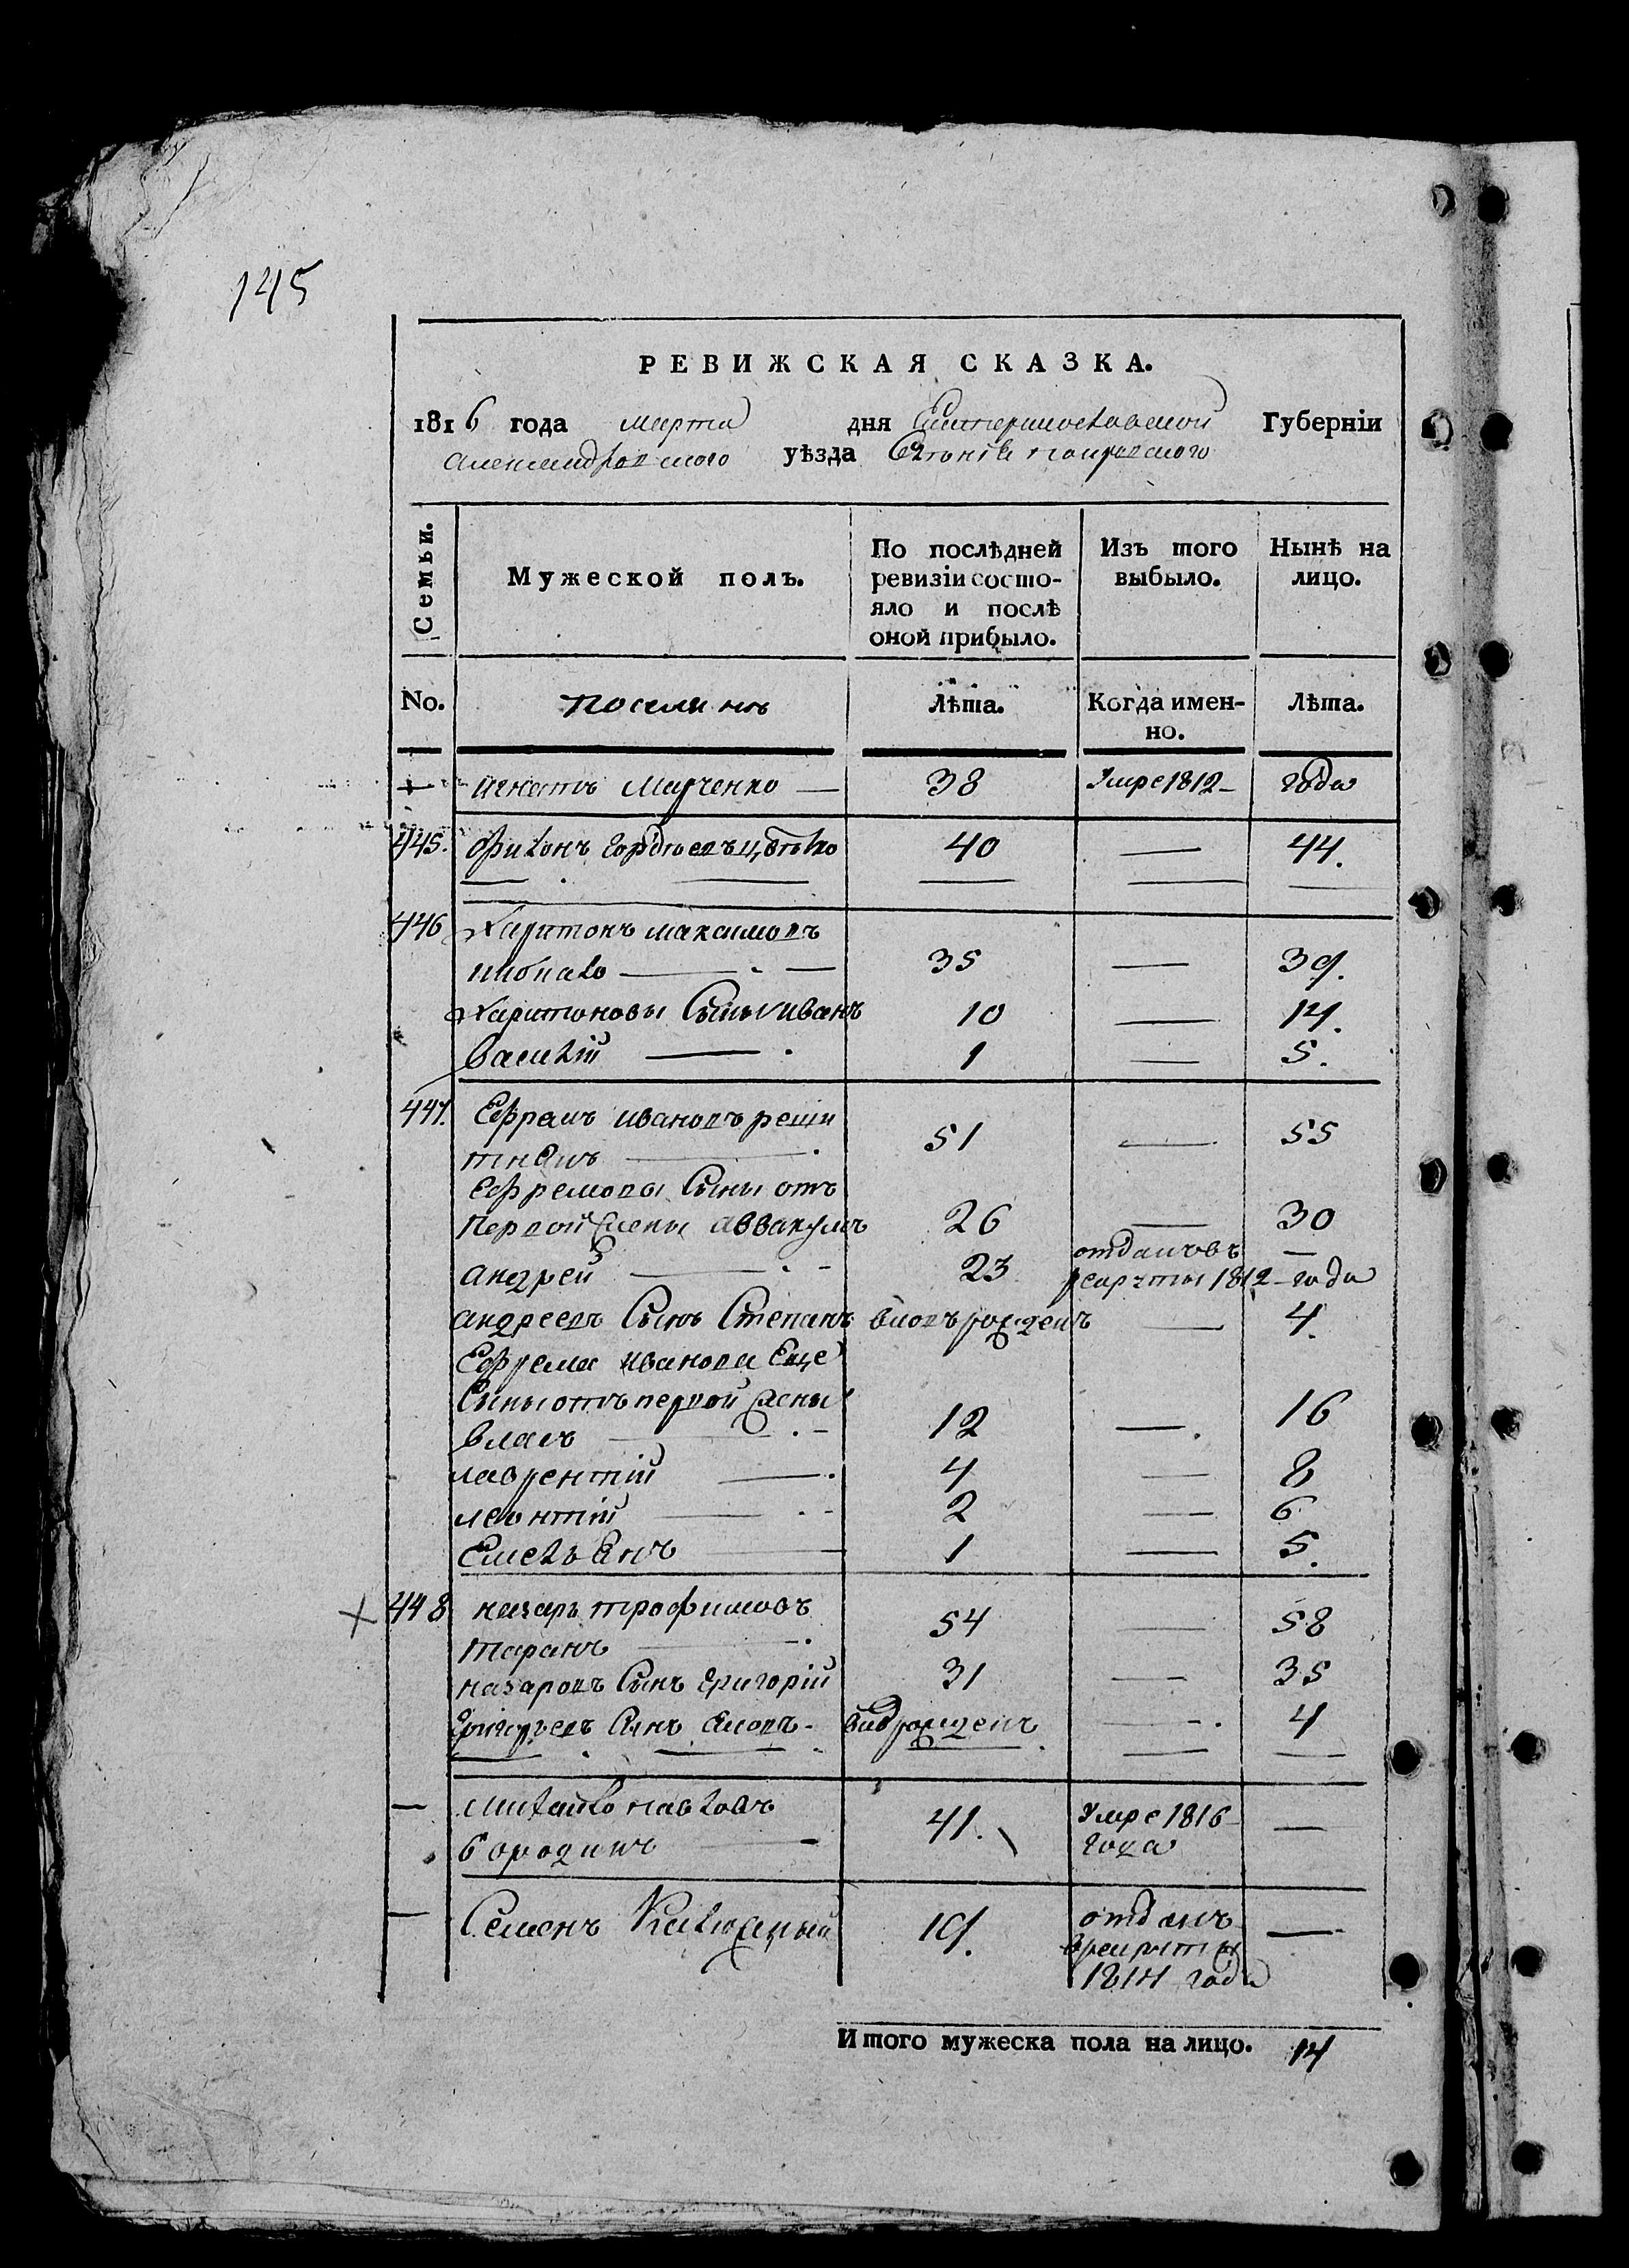 145
РЕВИЖСКАЯ СКАЗКА.
1816 года марта дня Екатеринославской Губерніи
Александровского уѣзда
Семьи.
Мужеской полъ.
По послѣдней ревизіи состо-
яло и послѣ
оной прибыло.
Изъ того
выбыло.
Нынѣ на
лицо.
No.
Лѣта.
Когда имен-
но.
Лѣта.
игнатъ Марченко — 38 Умре 1812 — года
445. филонъ гордѣевъ 40 — 44.
446 Харитонъ максимовъ
35 — 39.
Харитоновы Сыны иванъ 10 — 14.
василій — 1 — 5.
447. Ефремъ ивановъ
51 — 55
Ефремовы Сыны отъ
первой жены аввакумъ 26 — 30
андрей — 23 отданъ въ —
рекруты 1812 — года
андреевъ Сынъ Степанъ вновь рожденъ — 4.
Ефрема иванова Еще
Сыны отъ первой жены
власъ — 12 — 16
лаврентій — 4 — 8
леонтій — 2 — 6
Емельянъ — 1 — 5.
448 назаръ трофимовъ
таранъ — 54 — 58
назаровъ Сынъ григорій 31 — 35
григорьевъ Сынъ рожденъ — 4
— Михайло павловъ
бородинъ — 41. Умре 1816 —
года
— Семенъ Калюжный 19. отданъ —
врекруты
1814 года
Итого мужеска пола на лицо. 14